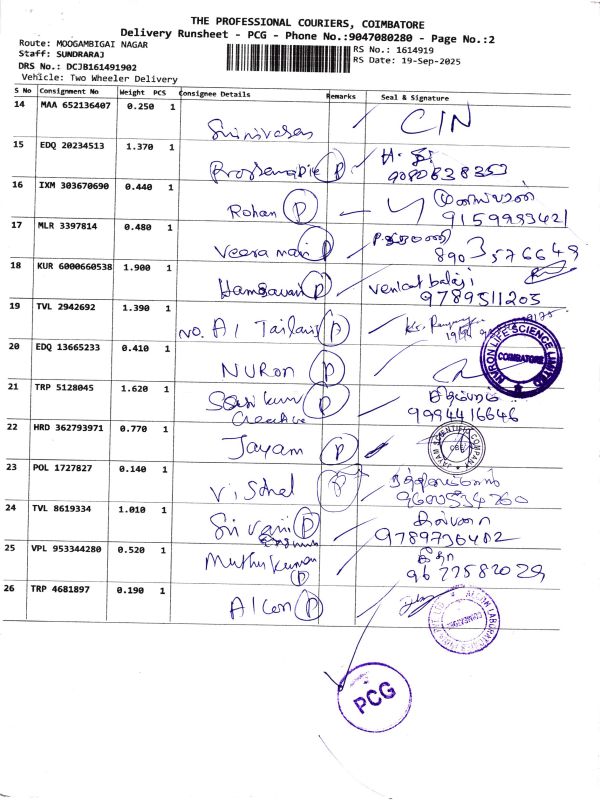 THE PROFESSIONAL COURIERS, COIMBATORE
Delivery Runsheet - PCG - Phone No.:9047080280 - Page No.:2
Route: MOOGAMBIGAI NAGAR
RS No.: 1614919
Staff: SUNDRARAJ
RS Date: 19-Sep-2025
DRS No.: DCJB161491902
Vehicle: Two Wheeler Delivery
S No Consignment No Weight PCS Consignee Details Remarks Seal & Signature
14 MAA 652136407 0.250 1
Srinivasan CIN
15 EDQ 20234513 1.370 1
P 9080838353
16 IXM 303670690 0.440 1
Rohan P
9159993421
17 MLR 3397814 0.480 1
Veeramani P
8903576649
18 KUR 6000660538 1.900 1
P Venkat balaji
9789511205
19 TVL 2942692 1.390 1
No. A1 Tailors P
20 EDQ 13665233 0.410 1
NURON P
NURON LIFE SCIENCE LIMITED
COIMBATORE
21 TRP 5128045 1.620 1
Sasikumar P
Creative 9994416646
22 HRD 362793971 0.770 1
Jayam P
JAYAM SCIENTIFIC COMPANY
CBE
23 POL 1727827 0.140 1
Vishal P
9600534760
24 TVL 8619334 1.010 1
Sri Vari P கல்பனா
9789736402
25 VPL 953344280 0.520 1
Muthukumar கீதா
P 9677582029
26 TRP 4681897 0.190 1
Alcon P
PCG